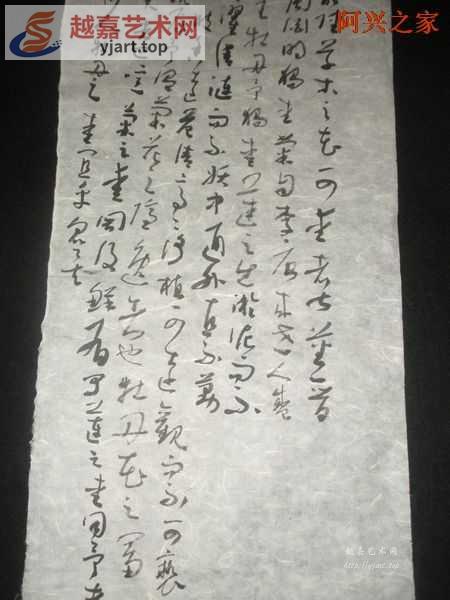 越嘉艺术网
yjart.top
阿兴之家
草木之花可爱者甚蕃晋
渊明独爱菊自李唐来世人盛
牡丹予独爱莲之出淤泥而不
濯清涟而不妖中通外直不蔓
远益清亭亭净植可远观而不可亵
予谓菊花之隐逸者也牡丹花之富
噫菊之爱陶后鲜有闻莲之爱同予者
牡丹之爱宜乎众矣
越嘉艺术网
http://yjart.top